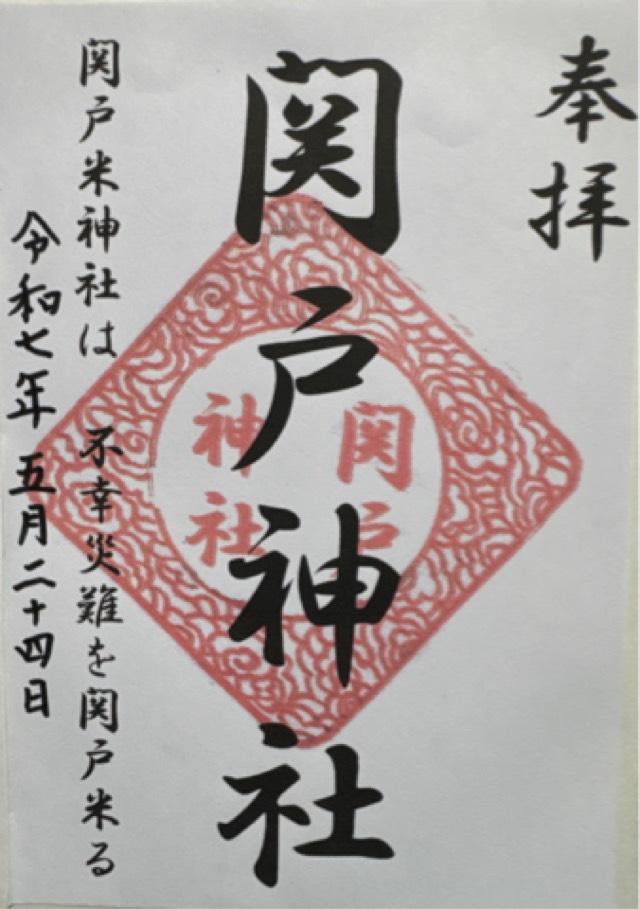 奉拝
関戸神社
関戸
神社
関戸米神社は 不幸災難を関戸米る
令和七年五月二十四日